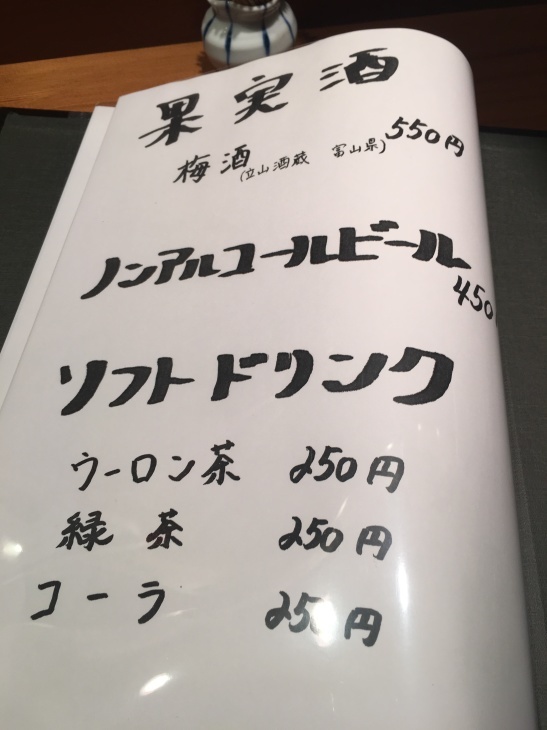 果実酒
梅酒(立山酒蔵 富山県) 550円
ノンアルコールビール
450
ソフトドリンク
ウーロン茶 250円
緑茶 250円
コーラ 250円